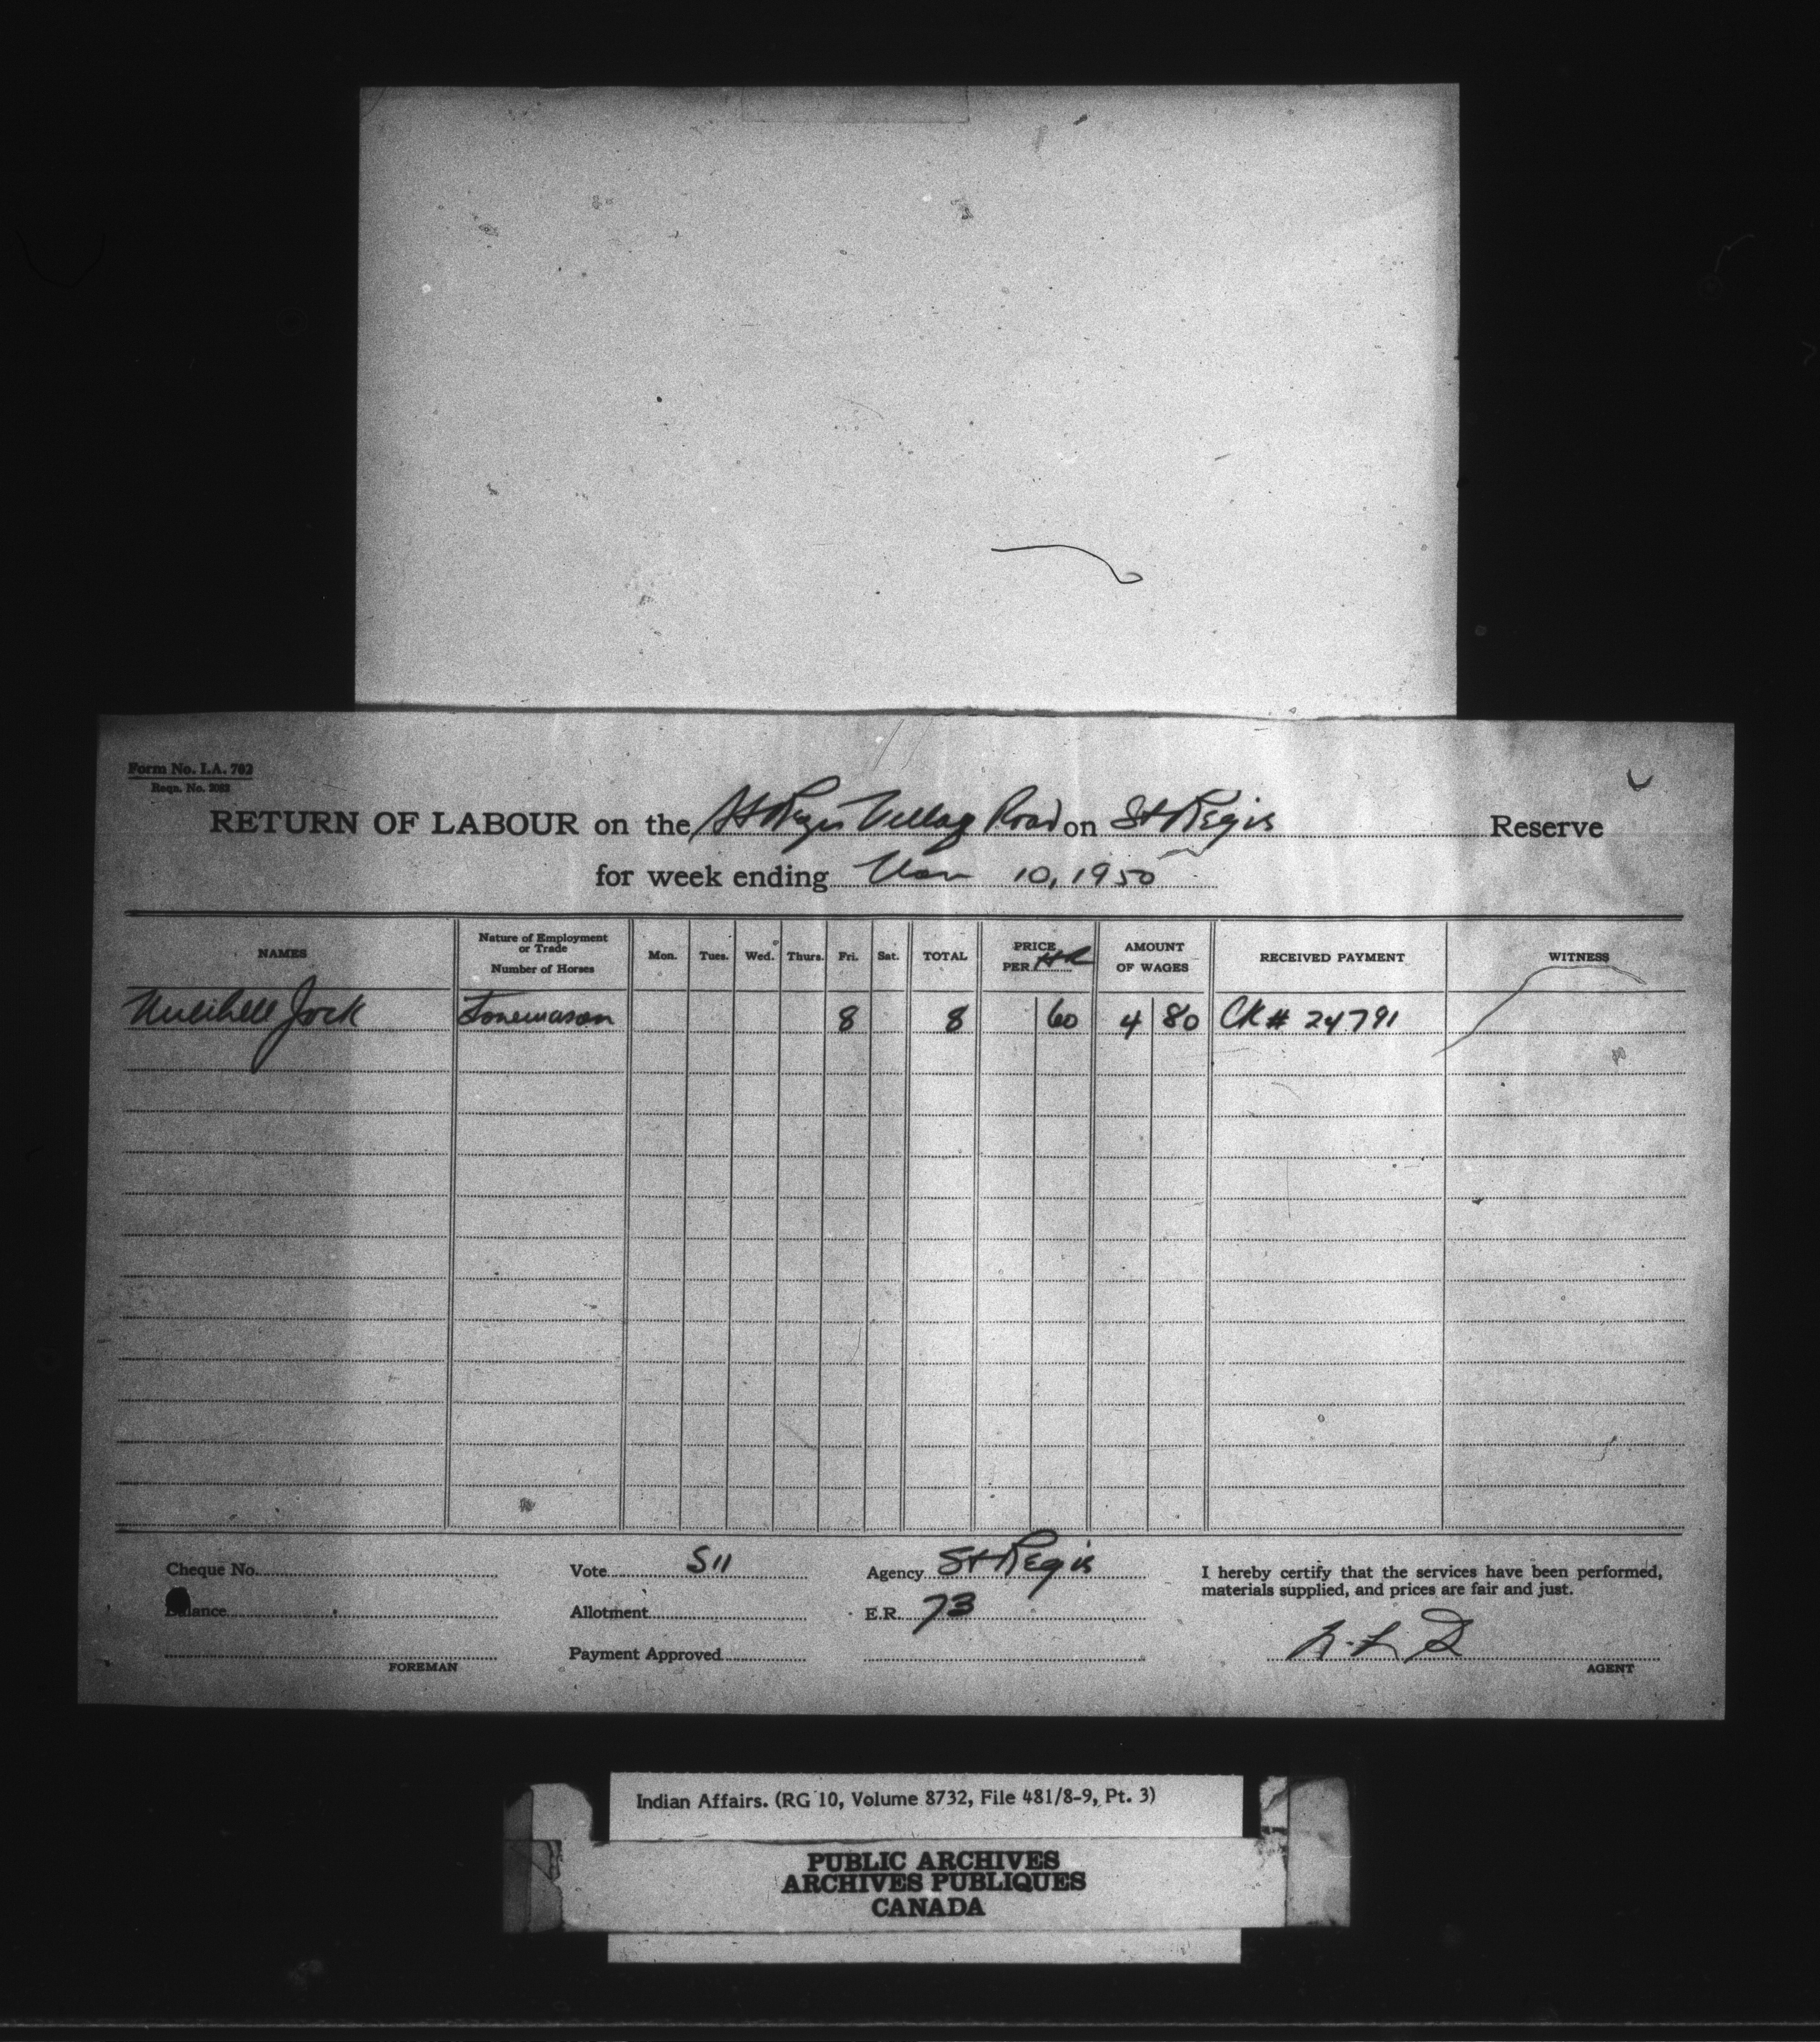 Form No. I.A. 702
Reqn. No. 2083
RETURN OF LABOUR on the St Regis Village Road on St Regis Reserve
for week ending Nov 10, 1950
NAMES
Nature of Employment or Trade
Number of Horses
Mon. Tues. Wed. Thurs. Fri. Sat. TOTAL
PRICE PER HR
AMOUNT OF WAGES
RECEIVED PAYMENT
WITNESS
Mitchell Jock 8 8 60 4 80 CK # 24791
Cheque No. Vote 511 Agency St Regis
Balance Allotment E.R. 73
Payment Approved
FOREMAN
I hereby certify that the services have been performed,
materials supplied, and prices are fair and just.
AGENT
Indian Affairs. (RG 10, Volume 8732, File 481/8-9, Pt. 3)
PUBLIC ARCHIVES
ARCHIVES PUBLIQUES
CANADA